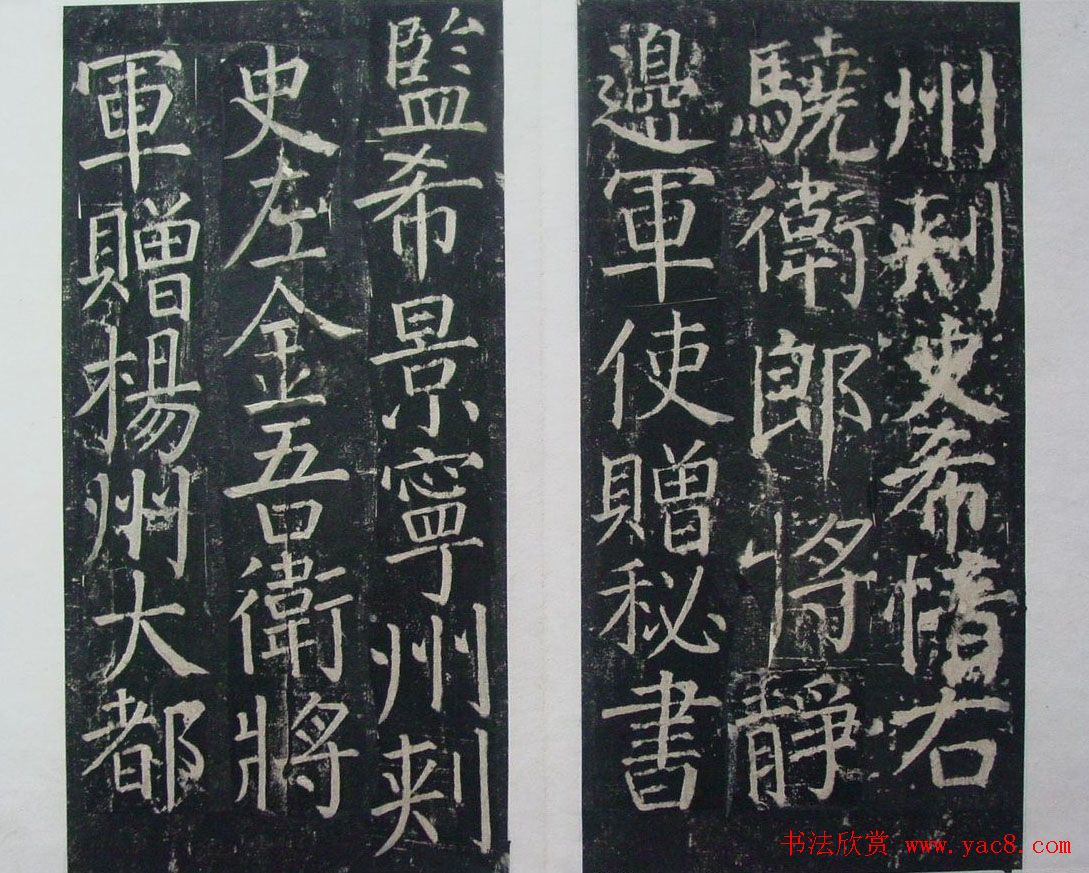 州刺史希憕右
驍衛郎將靜
邊軍使贈秘書
監希景寧州刺
史左金吾衛將
軍贈楊州大都
书法欣赏 www.yac8.com